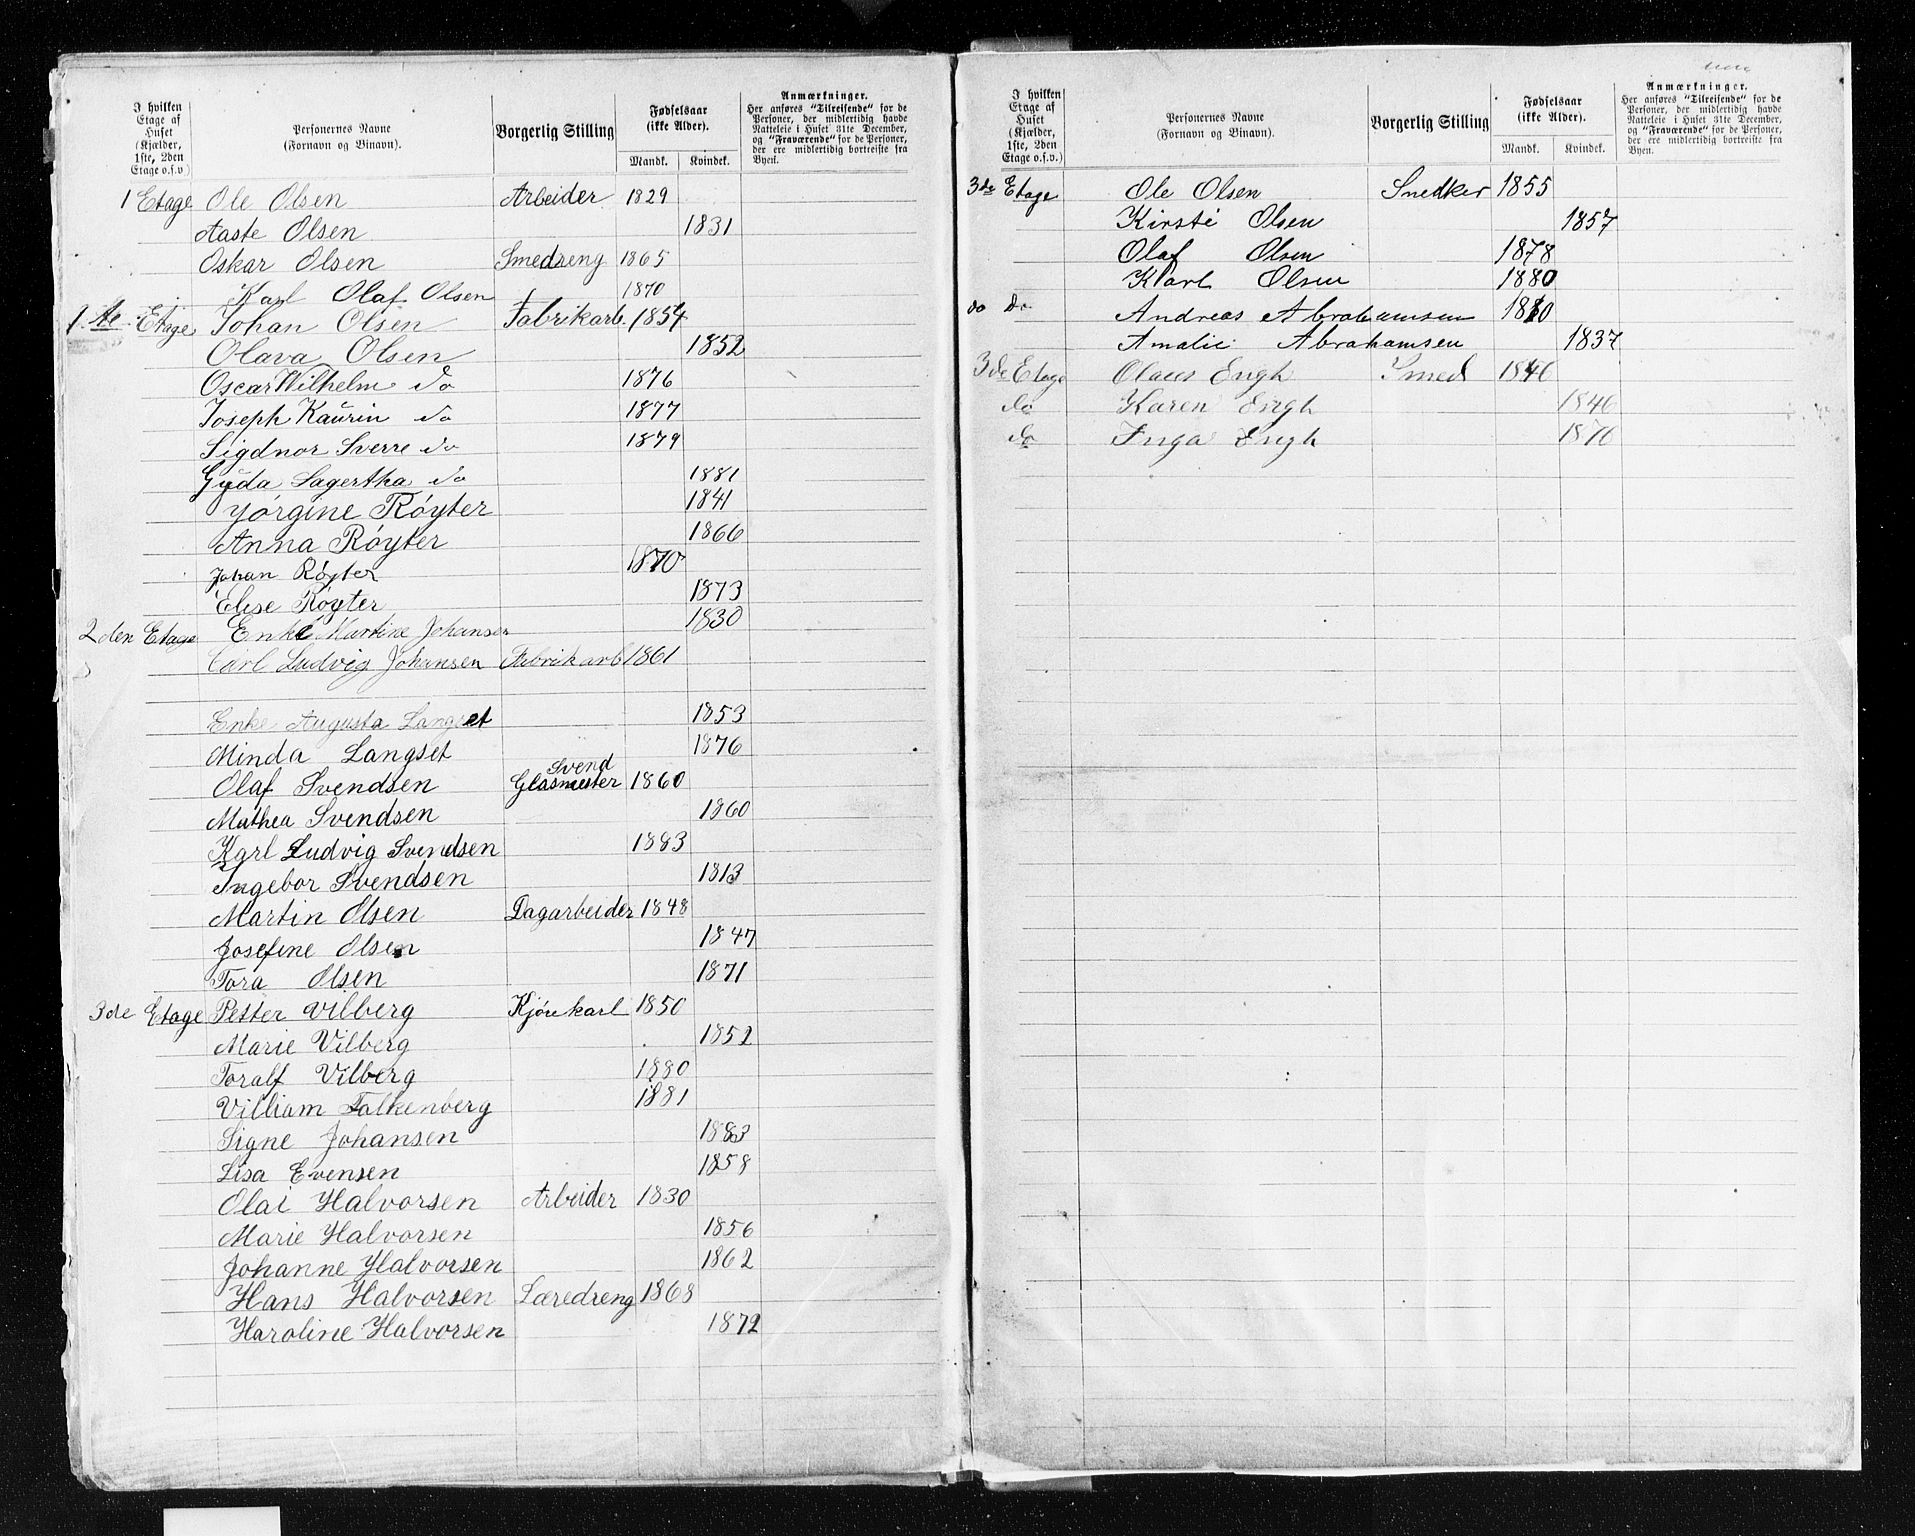 I hvilken Etage af Huset (Kjælder, 1ste, 2den Etage o.s.v.) | Personernes Navne (Fornavn og Binavn). | Borgerlig Stilling | Fødselsaar (ikke Alder). Mandk. Kvindek. | Anmærkninger. Her anføres "Tilreisende" for de Personer, der midlertidig havde Natteleie i Huset 31te December, og "Fraværende" for de Personer, der ere midlertidig bortreiste fra Byen.
1 Etage Ole Olsen Arbeider 1829
Aaste Olsen 1831
Oskar Olsen Smedreng 1865
Karl Olaf Olsen 1870
1ste Etage Johan Olsen Fabrikarb. 1854
Olava Olsen 1852
Oscar Wilhelm do 1876
Joseph Kaurin do 1877
Sigdnor Sverre do 1879
Gyda Lagertha do 1881
Jørgine Røyter 1841
Anna Røyter 1866
Johan Røyter 1870
Elise Røyter 1873
2den Etage Enke Martine Johansen 1830
Carl Ludvig Johansen Fabrikarb 1861
Enke Augusta Langset 1853
Minda Langset 1876
Olaf Svendsen Glasmester Svend 1860
Mathea Svendsen 1860
Karl Ludvig Svendsen 1883
Ingebor Svendsen 1813
Martin Olsen Dagarbeider 1848
Josefine Olsen 1847
Tora Olsen 1871
3de Etage Petter Vilberg Kjørekarl 1850
Marie Vilberg 1852
Toralf Vilberg 1880
Villiam Falkenberg 1881
Signe Johansen 1883
Lisa Evensen 1858
Olai Halvorsen Arbeider 1830
Marie Halvorsen 1856
Johanne Halvorsen 1862
Hans Halvorsen Læredreng 1868
Karoline Halvorsen 1872
I hvilken Etage af Huset (Kjælder, 1ste, 2den Etage o.s.v.) | Personernes Navne (Fornavn og Binavn). | Borgerlig Stilling | Fødselsaar (ikke Alder). Mandk. Kvindek. | Anmærkninger. Her anføres "Tilreisende" for de Personer, der midlertidig havde Natteleie i Huset 31te December, og "Fraværende" for de Personer, der ere midlertidig bortreiste fra Byen.
3de Etage Ole Olsen Snedker 1855
Kirsti Olsen 1857
Olaf Olsen 1878
Karl Olsen 1880
do do Andreas Abrahamsen 1810
Amalie Abrahamsen 1837
3de Etage Olaus Engh Smed 1846
do Karen Engh 1846
do Inga Engh 1876